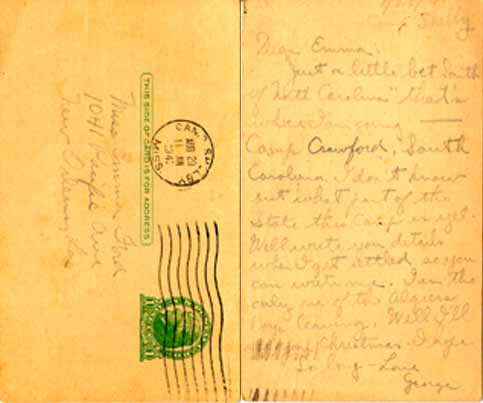 THIS SIDE OF CARD IS FOR ADDRESS
CAMP SHELBY
AUG 29
11 AM
194
MISS
Miss Emma Ford
1041 Pacific Ave
New Orleans, La
Camp Shelby
Dear Emma,
Just a little bet South
of North Carolina" that's
where I am going
Camp Crawford, South
Carolina, I don't know
just what part of the
State this Camp is yet.
Will write you details
when I get settled so you
can write me. I am the
only one of the Algiers
boys leaving. Well I'll
Christmas I hope
So long - Love
George